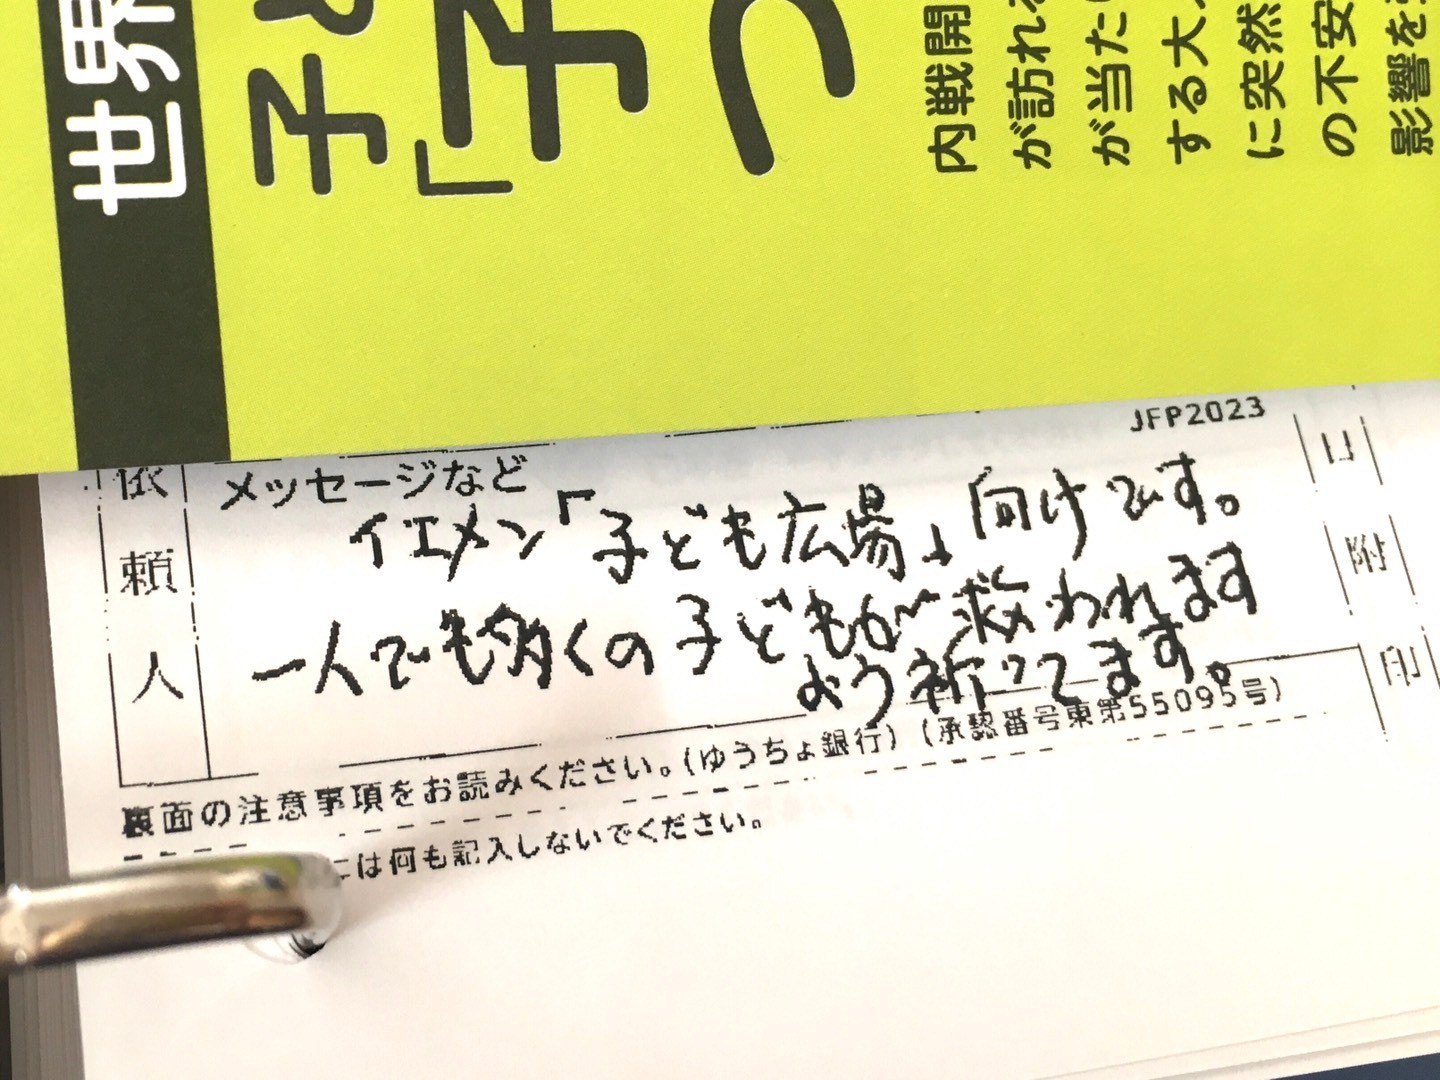 世界
子ど
「子
つ
内戦開
が訪れ
が当た
する大
に突然
の不安
影響を
JFP2023
依頼人
メッセージなど
イエメン「子ども広場」向けです。
一人でも多くの子どもが救われます
よう祈ってます。
日附印
裏面の注意事項をお読みください。(ゆうちょ銀行)(承認番号東第55095号)
には何も記入しないでください。